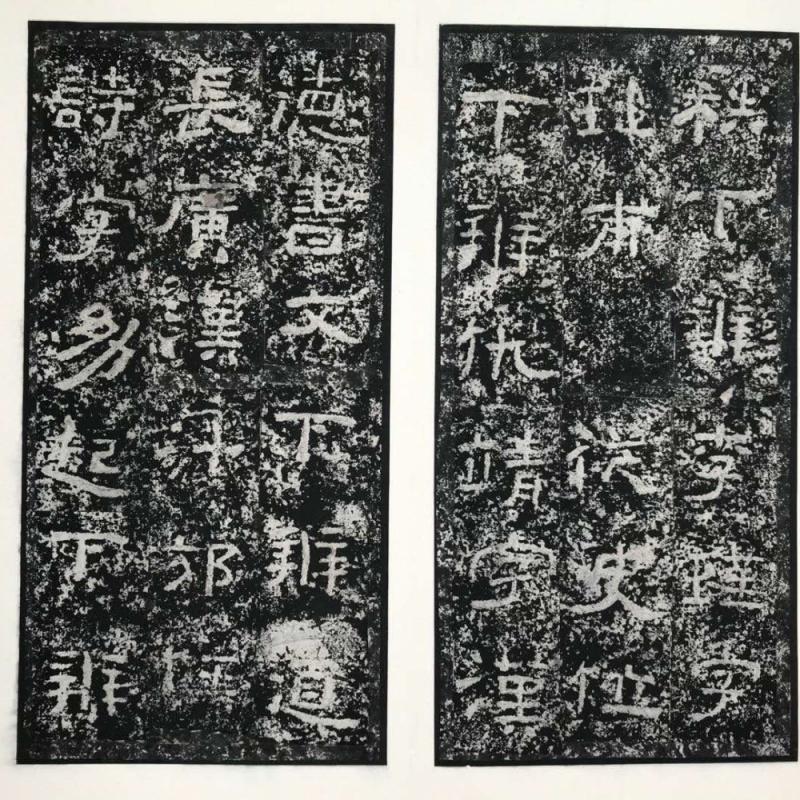 秩下辨李瑾字
瑋甫從史位
下辨仇靖字漢
德書文下辨道
長廣漢汁邡任
詩字幼起下辨